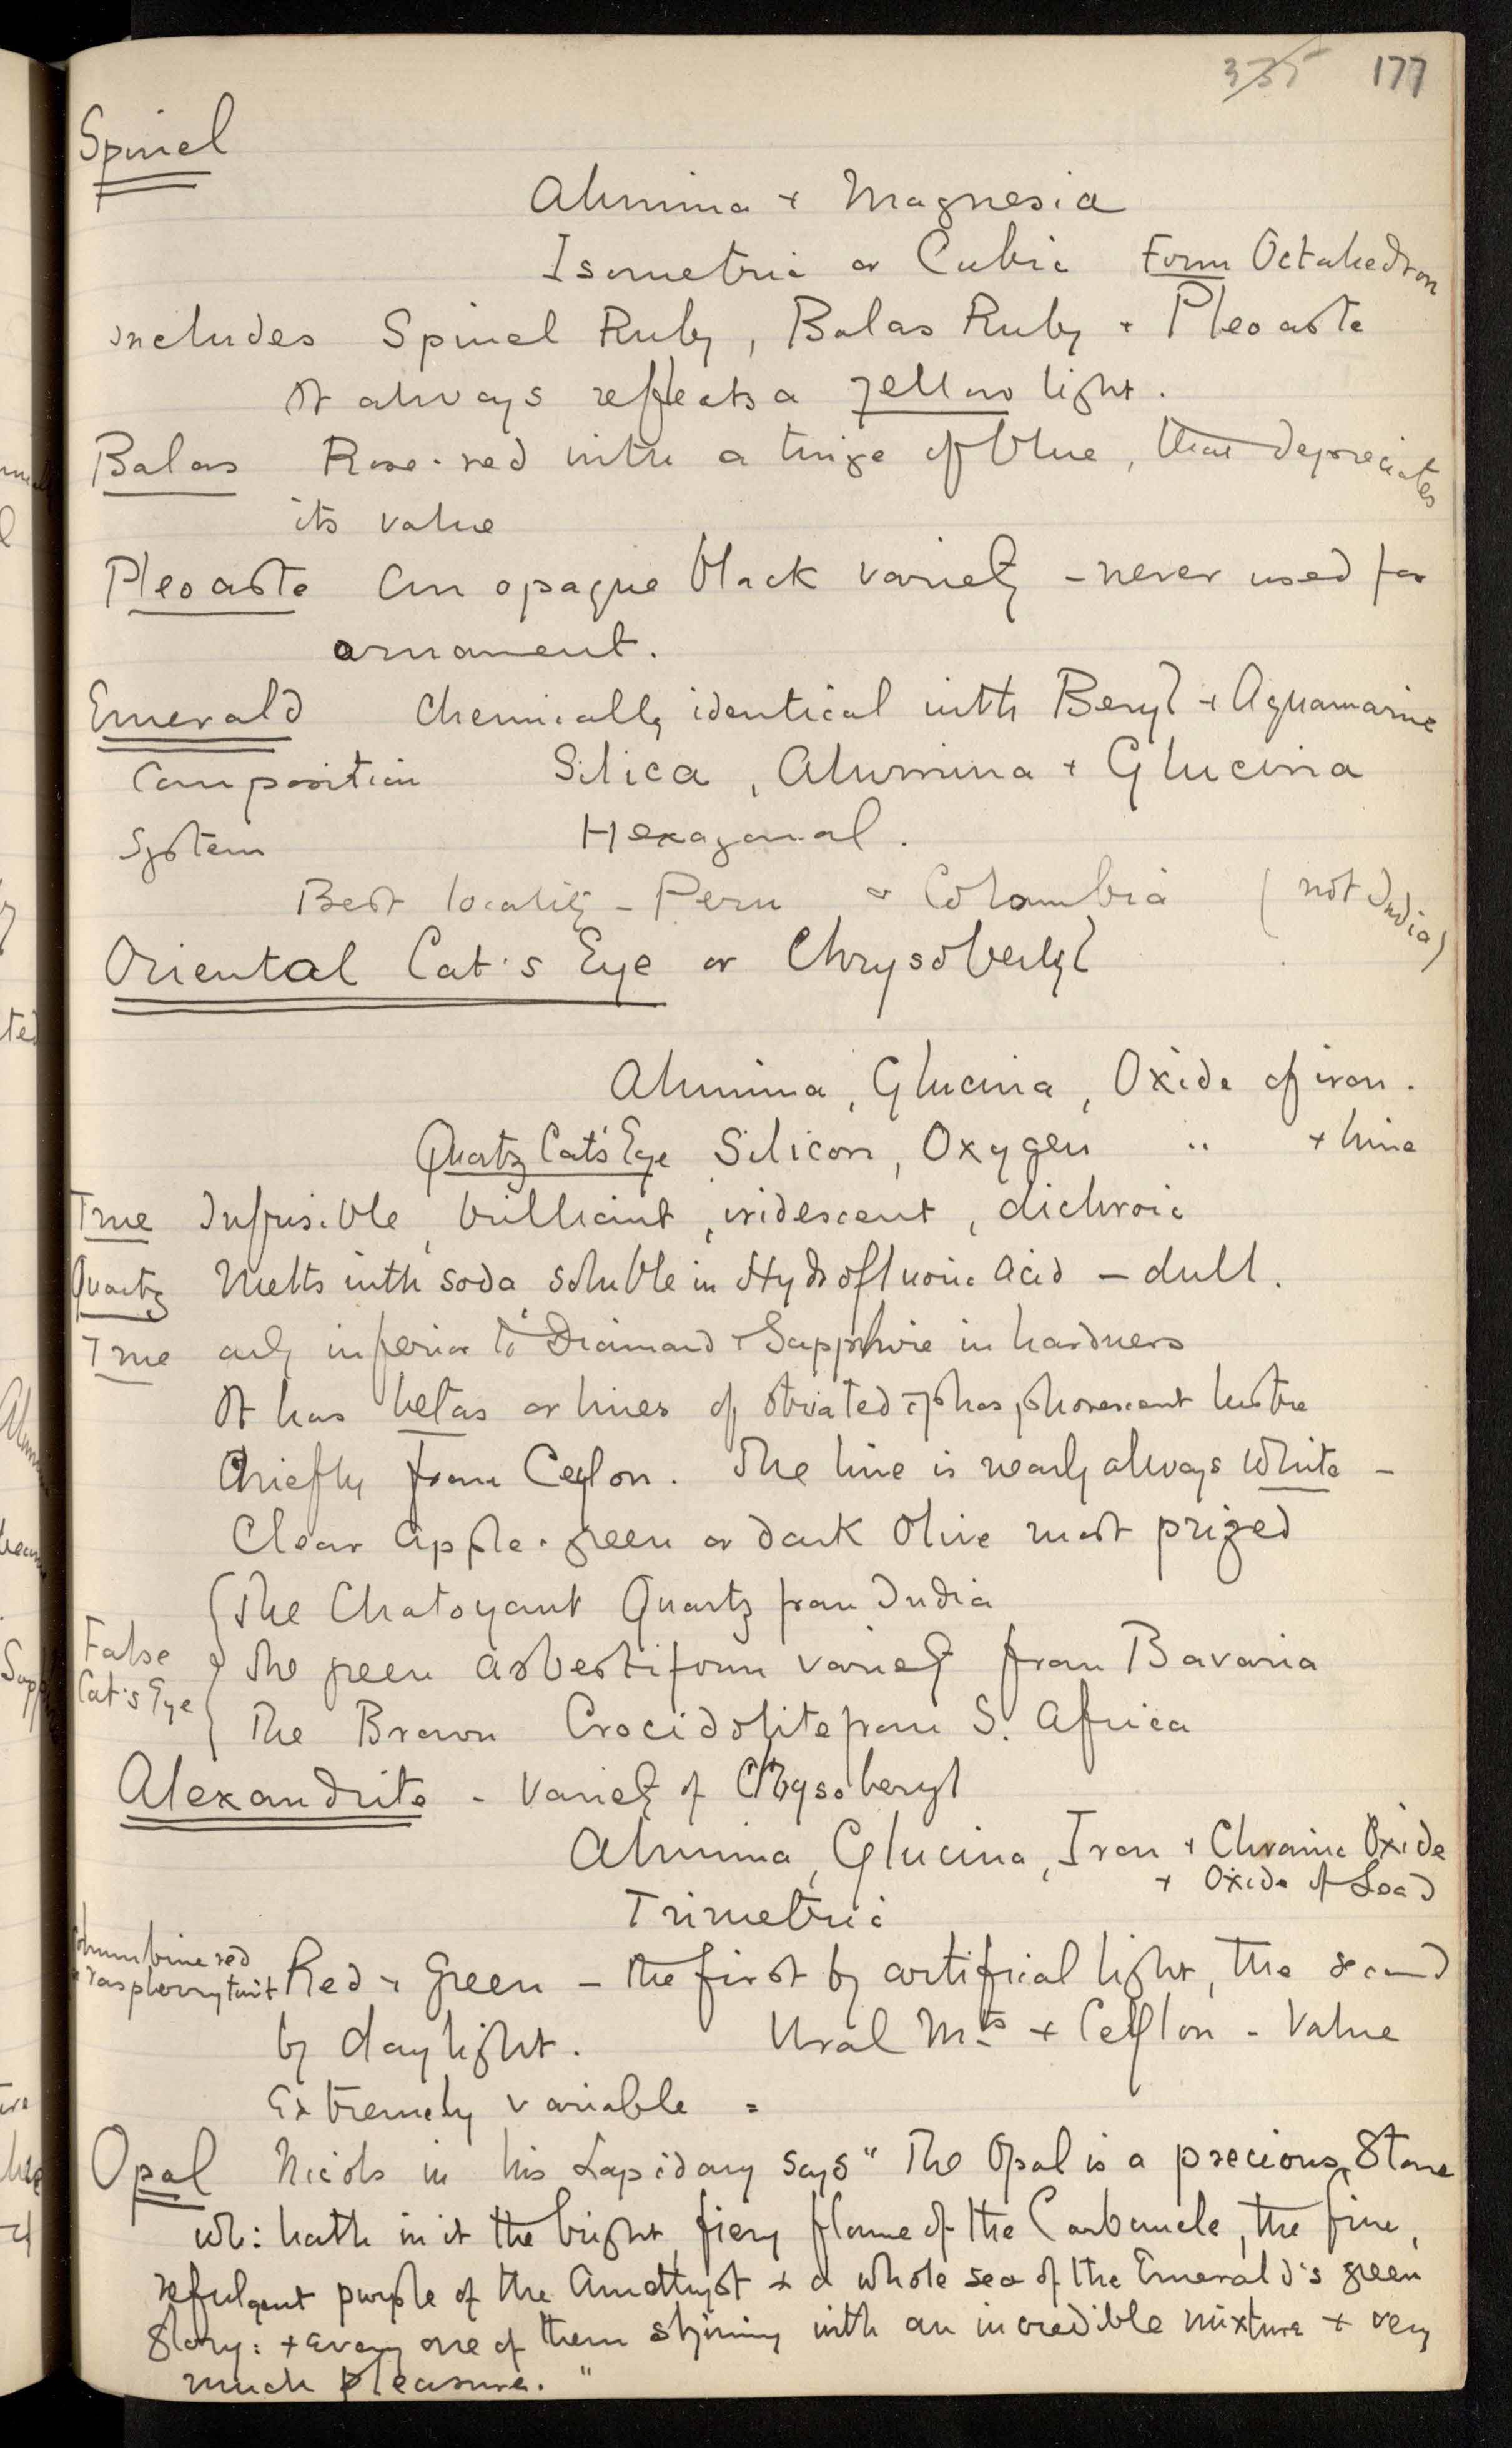 335 177
Spinel
Alumina + Magnesia
Isometric or Cubic Form Octahedron
includes Spinel Ruby, Balas Ruby + Pleoaste
It always reflects a yellow light.
Balas Rose-red with a tinge of blue, that depreciates
its value
Pleoaste An opaque black variety - never used for
ornament.
Emerald Chemically identical with Beryl + Aquamarine
Composition Silica, Alumina + Glucina
System Hexagonal.
Best locality - Peru or Colombia (not India)
Oriental Cat's Eye or Chrysoberyl
Alumina, Glucina, Oxide of iron.
Quartz Cat's Eye Silicon, Oxygen " + lime
True Infusible, brilliant, iridescent, dichroic
Quartz Melts with soda, soluble in Hydrofluoric Acid - dull.
True only inferior to Diamond + Sapphire in hardness
It has betas or lines of striated phosphorescent lustre
Chiefly from Ceylon. The line is nearly always white -
Clear apple-green or dark Olive most prized
The Chatoyant Quartz from India
False Cat's Eye The green asbestiform variety from Bavaria
The Brown Crocidolite from S. Africa
Alexandrite - Variety of Chrysoberyl
Alumina, Glucina, Iron + Chromic Oxide
+ Oxide of Lead
Trimetric
Columbine red
+ raspberry tint Red + Green - the first by artificial light, the second
by daylight. Ural Mts + Ceylon - Value
Extremely variable =
Opal Nicols in his Lapidary says "The Opal is a precious Stone
wh: hath in it the bright, fiery flame of the Carbuncle, the fine,
refulgent purple of the Amethyst + a whole sea of the Emerald's green
glory: + every one of them shining with an incredible mixture + very
much pleasure."